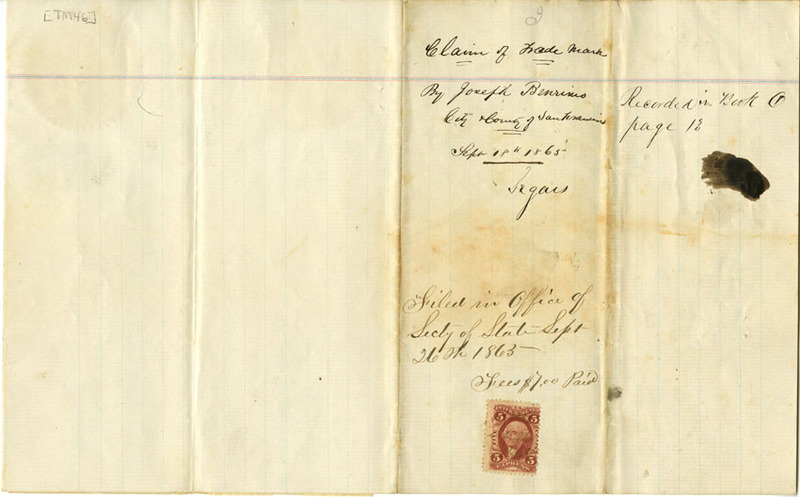 [TM46]
Claim of Trade Mark
By Joseph Benrimo
City & County of San Francisco
Sept 18th 1865
Segars
Filed in Office of
Secty of State Sept
26th 1865
Fees $7.00 Paid
5 5
5 EXPRESS 5
Recorded in Book
page 13